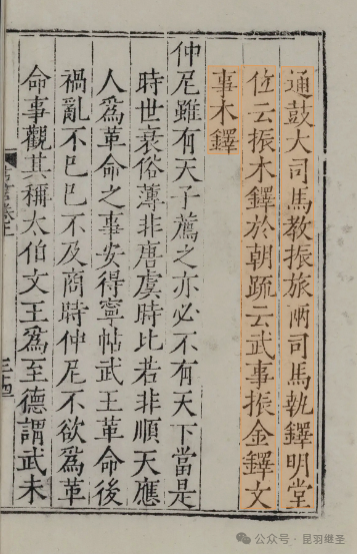 通鼓大司馬教振旅兩司馬執鐸明堂
位云振木鐸於朝疏云武事振金鐸文
事木鐸
仲尼雖有天子薦之亦必不有天下當是
時世衰俗薄非唐虞時比若非順天應
人爲革命之事安得寧帖武王革命後
禍亂不巳巳不及商時仲尼不欲爲革
命事觀其稱太伯文王爲至德謂武未
公众号·昆羽继圣